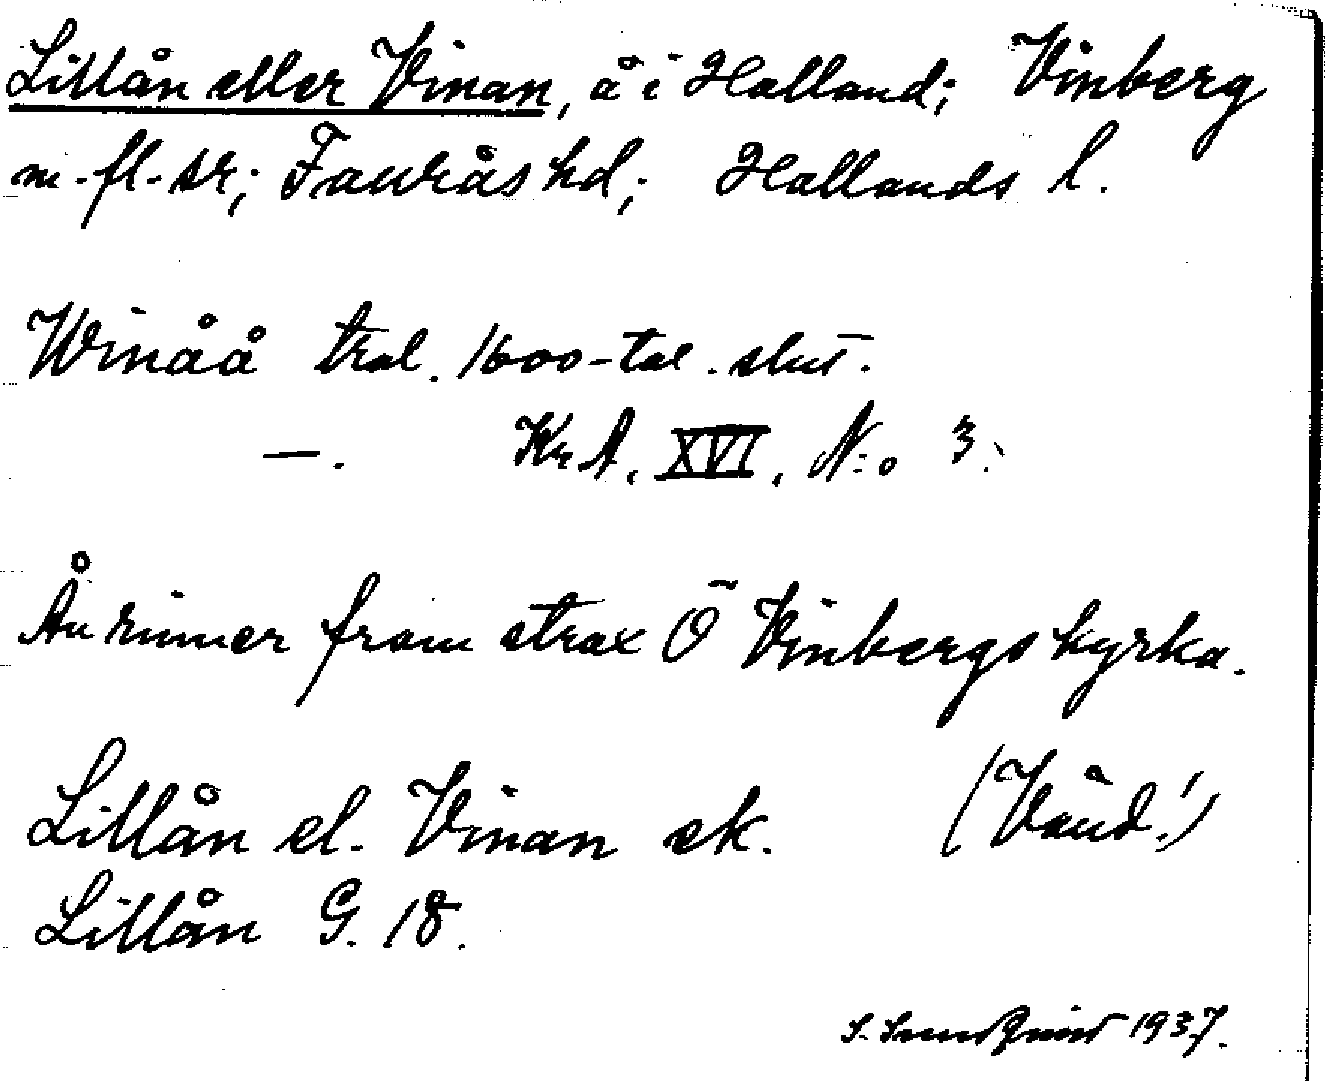 Lillån eller Vinan, å i Halland; Vinberg
m. fl. sr; Faurås hd; Hallands l.
Winåå tral. 1600-tal. slut.
—. KrA, XVI, N:o 3.
Ån rinner fram strax Ö Vinbergs kyrka.
Lillån el. Vinan ek. (Vänd!)
Lillån G. 18.
1937.